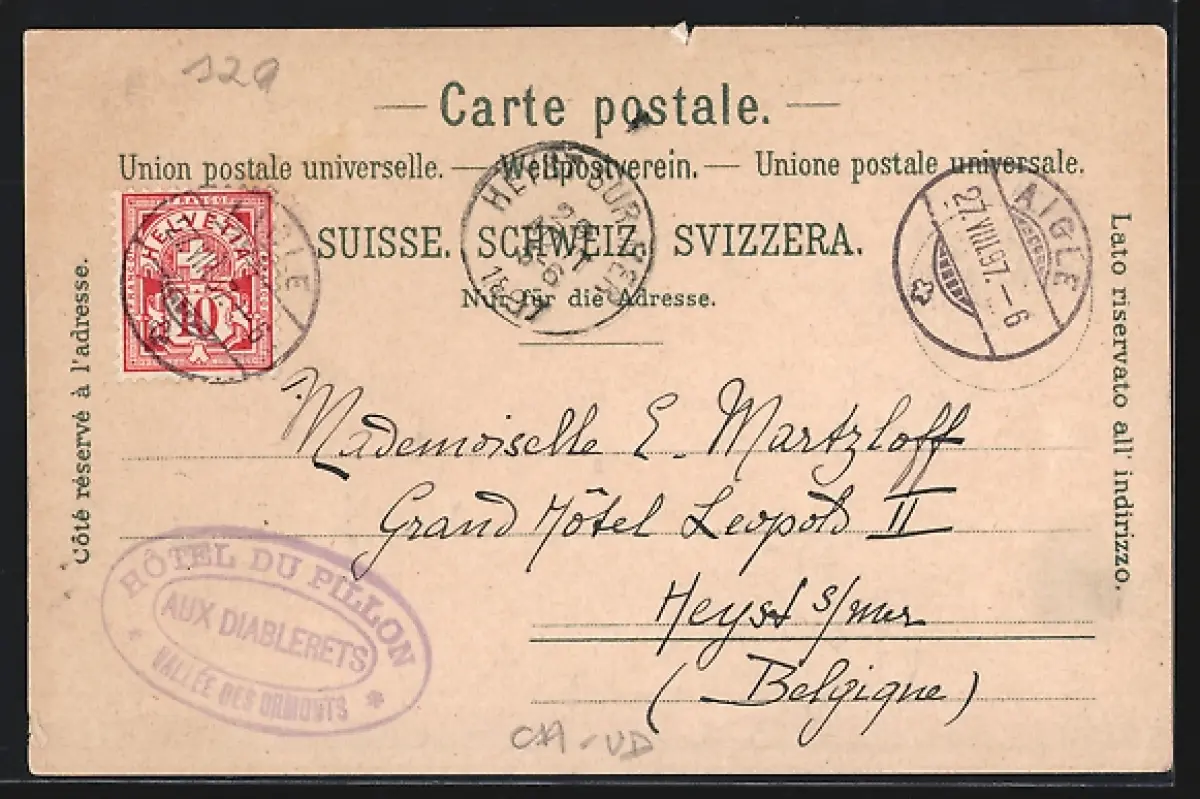 129
— Carte postale. —
Union postale universelle. — Weltpostverein. — Unione postale universale.
SUISSE. SCHWEIZ. SVIZZERA.
Nur für die Adresse.
Côté réservé à l'adresse.
Lato riservato all' indirizzo.
FRANCO
HELVETIA
10
AIGLE
27.VIII.97.–6
1897
Mademoiselle E. Martzloff
Grand Hôtel Leopold II
Heyst s/mer
(Belgique)
HÔTEL DU PILLON
AUX DIABLERETS
VALLÉE DES ORMONTS
CH - VD